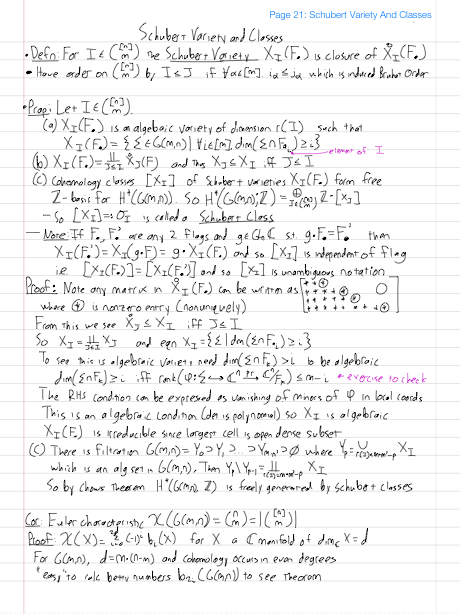 Page 21: Schubert Variety And Classes
Schubert Variety and Classes
• Defn: For I ∈ ([n] m) the Schubert Variety X_I(F.) is closure of X̊_I(F.)
• Have order on ([n] m) by I ≤ J if ∀α∈[m]. i_α ≤ j_α which is induced Bruhat Order
• Prop: Let I ∈ ([n] m).
(a) X_I(F.) is an algebraic variety of dimension r(I) such that
X_I(F.) = { Σ∈G(m,n) | ∀i∈[m], dim(Σ∩F_{a_i}) ≥ i }
element of I
(b) X_I(F.) = ∐_{J≤I} X̊_J(F) and thus X_J ≤ X_I iff J ≤ I
(c) Cohomology classes [X_I] of Schubert varieties X_I(F.) form free
ℤ-basis for H*(G(m,n)). So H*(G(m,n);ℤ) = ⊕_{J∈([n] m)} ℤ·[X_J]
– So [X_I] =: σ_I is called a Schubert Class
– Note: If F., F.' are any 2 flags and g∈GL_n ℂ st. g·F. = F.' then
X_I(F.') = X_I(g·F) = g·X_I(F.) and so [X_I] is independent of flag
i.e. [X_I(F.)] = [X_I(F.')] and so [X_I] is unambiguous notation
Proof: Note any matrix in X̊_I(F.) can be written as
where ⊕ is nonzero entry (nonuniquely)
From this we see X̊_J ≤ X_I iff J ≤ I
So X_I = ∐_{J≤I} X̊_J and eqn X_I = { Σ | dim(Σ∩F_{a_i}) ≥ i }
To see this is algebraic variety need dim(Σ∩F_k) > i to be algebraic
dim(Σ∩F_k) ≥ i iff rank(φ: Σ ↪ ℂ^n → ℂ^n/F_k) ≤ m−i • exercise to check
The RHS condition can be expressed as vanishing of minors of φ in local coords
This is an algebraic condition (det is polynomial) so X_I is algebraic
X_I(F.) is irreducible since largest cell is open dense subset
(c) There is filtration G(m,n) = Y_0 ⊃ Y_1 ⊃ ... ⊃ ∅ where X_I
which is an alg set in G(m,n). Then X_I
So by Chows Theorem H*(G(m,n), ℤ) is freely generated by Schubert classes
Cor: Euler characteristic χ(G(m,n)) = (n m) = |([n] m)|
Proof: χ(X) = Σ (-1)^i b_i(X) for X a ℂ manifold of dim_ℂ X = d
For G(m,n), d = m·(n-m) and cohomology occurs in even degrees
"easy" to calc betti numbers b_{2i}(G(m,n)) to see Theorem